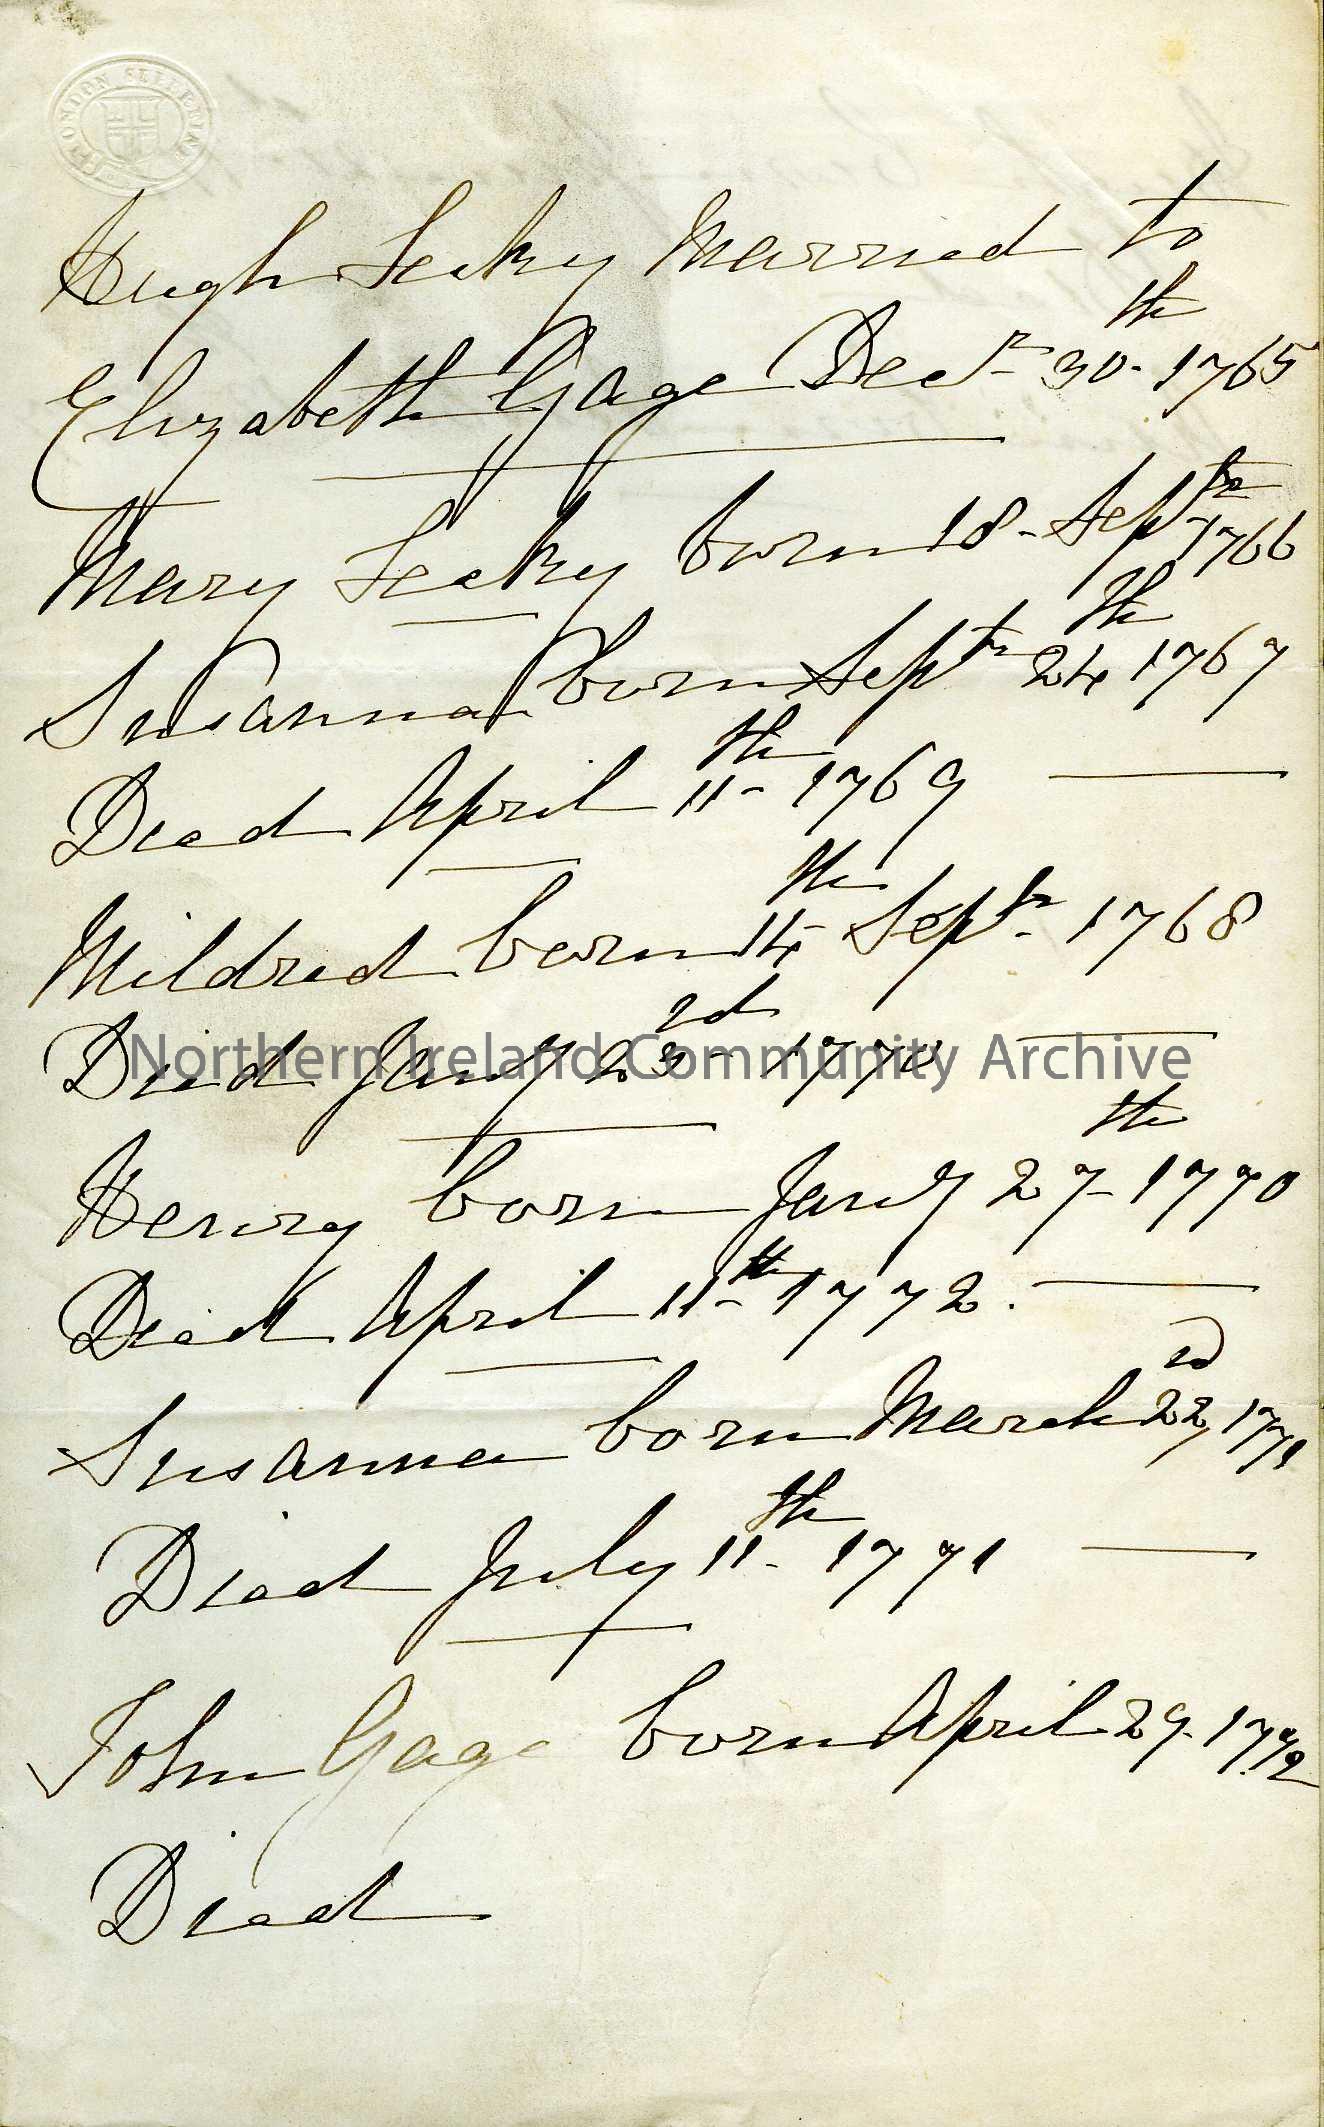 LONDON SUPERFINE
Hugh Lecky Married to
Elizabeth Gage Decr 30th 1765
Mary Lecky born 18 Septbr 1766
Susanna born Septbr 24th 1767
Died April 11th 1769
Mildred born 14th Septbr 1768
Died Jany 23rd 1770
Northern Ireland Community Archive
Henry born Jany 27th 1770
Died April 11th 1772.
Susanna born March 22nd 1771
Died July 11th 1771
John Gage born April 29 1772
Died